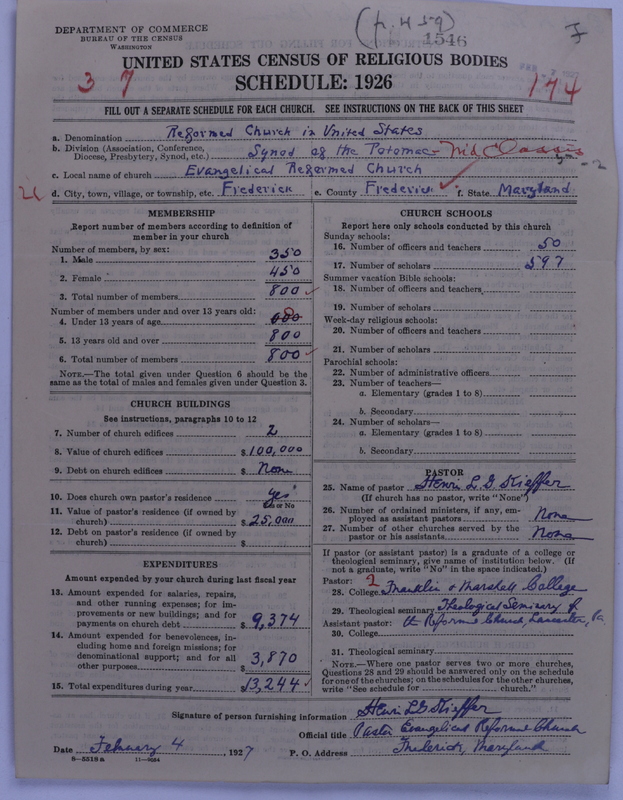 DEPARTMENT OF COMMERCE
BUREAU OF THE CENSUS
WASHINGTON
(p. 459)
1546
UNITED STATES CENSUS OF RELIGIOUS BODIES
SCHEDULE: 1926
3 7
174
FILL OUT A SEPARATE SCHEDULE FOR EACH CHURCH. SEE INSTRUCTIONS ON THE BACK OF THIS SHEET
a. Denomination Reformed Church in United States
b. Division (Association, Conference, Diocese, Presbytery, Synod, etc.) Synod of the Potomac
c. Local name of church Evangelical Reformed Church
d. City, town, village, or township, etc. Frederick e. County Frederick f. State Maryland
MEMBERSHIP
Report number of members according to definition of
member in your church
Number of members, by sex:
1. Male 350
2. Female 450
3. Total number of members 800
Number of members under and over 13 years old:
4. Under 13 years of age
5. 13 years old and over 800
6. Total number of members 800
NOTE.—The total given under Question 6 should be
same as the total of males and females given under Question 3.
CHURCH BUILDINGS
See instructions, paragraphs 10 to 12
7. Number of church edifices 2
8. Value of church edifices $100,000
9. Debt on church edifices $ None
10. Does church own pastor's residence yes
Yes or No
11. Value of pastor's residence (if owned by
church) $25,000
12. Debt on pastor's residence (if owned by
church) $
EXPENDITURES
Amount expended by your church during last fiscal year
13. Amount expended for salaries, repairs,
and other running expenses; for im-
provements or new buildings; and for
payments on church debt $9,374
14. Amount expended for benevolences, in-
cluding home and foreign missions; for
denominational support; and for all
other purposes $3,870
15. Total expenditures during year $13,244
CHURCH SCHOOLS
Report here only schools conducted by this church
Sunday schools:
16. Number of officers and teachers 50
17. Number of scholars 597
Summer vacation Bible schools:
18. Number of officers and teachers
19. Number of scholars
Week-day religious schools:
20. Number of officers and teachers
21. Number of scholars
Parochial schools:
22. Number of administrative officers
23. Number of teachers—
a. Elementary (grades 1 to 8)
b. Secondary
24. Number of scholars—
a. Elementary (grades 1 to 8)
b. Secondary
PASTOR
25. Name of pastor Henri L. G. Kieffer
(If church has no pastor, write "None")
26. Number of ordained ministers, if any, em-
ployed as assistant pastors None
27. Number of other churches served by the
pastor or his assistants None
If pastor (or assistant pastor) is a graduate of a college or
theological seminary, give name of institution below. (If
not a graduate, write "No" in the space indicated.)
Pastor: 2
28. College Franklin & Marshall College
29. Theological seminary Theological Seminary of
Assistant pastor: the Reformed Church, Lancaster, Pa.
30. College
31. Theological seminary
NOTE.—Where one pastor serves two or more churches,
Questions 28 and 29 should be answered only on the schedule
for one of the churches; on the schedules for the other churches,
write "See schedule for church."
Signature of person furnishing information Henri L G Kieffer
Official title Pastor Evangelical Reformed Church
Date February 4, 1927 P. O. Address Frederick, Maryland
8—5518 a 11—9084